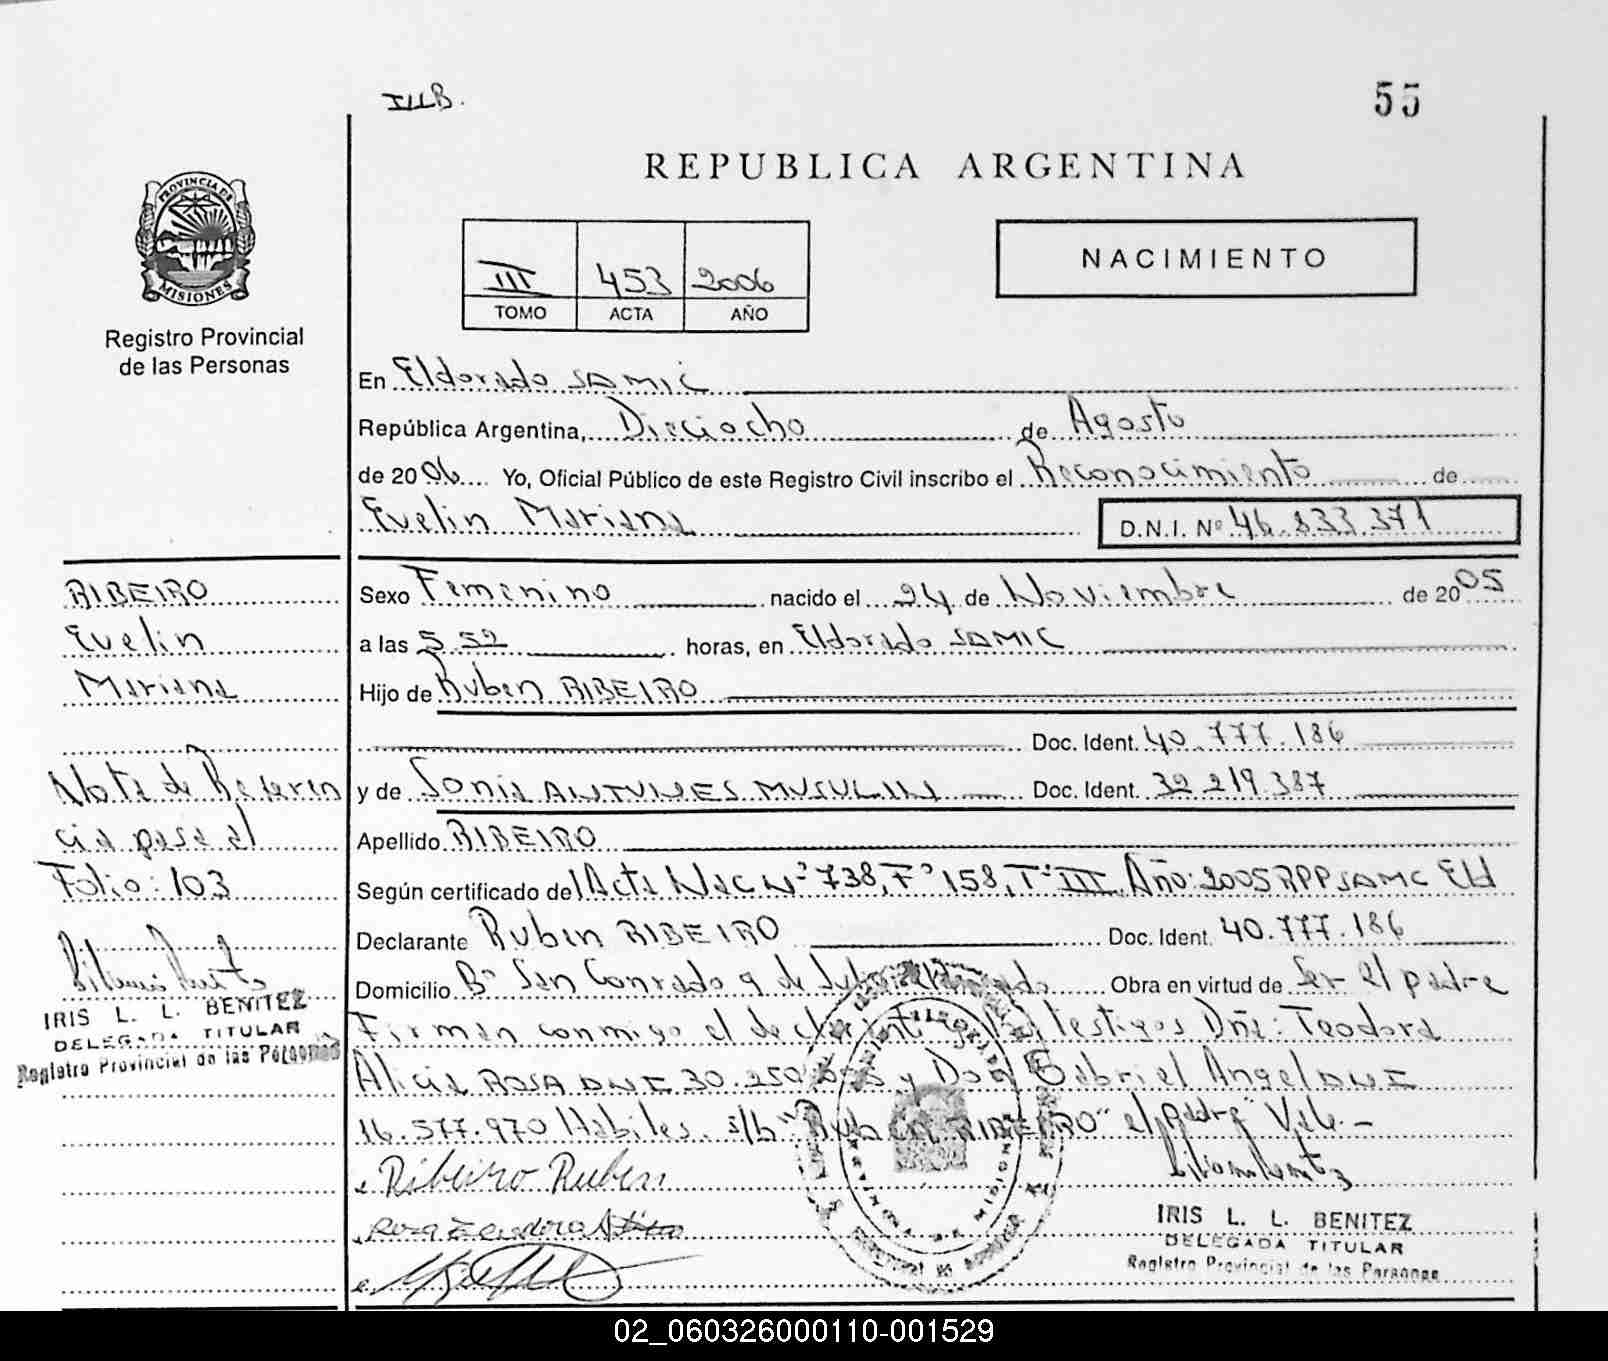 IIIB.
55
REPUBLICA ARGENTINA
PROVINCIA DE
MISIONES
Registro Provincial
de las Personas
III 453 2006
TOMO ACTA AÑO
NACIMIENTO
En Eldorado SAMIC
República Argentina, Dieciocho de Agosto
de 2006 Yo, Oficial Público de este Registro Civil inscribo el Reconocimiento de
Evelin Mariana D.N.I. Nº 46.833.371
RIBEIRO
Evelin
Mariana
Nota de Referen
cia pasa al
Folio: 103
IRIS L. L. BENITEZ
DELEGADA TITULAR
Registro Provincial de las Personas
Sexo Femenino nacido el 24 de Noviembre de 2005
a las 5.52 horas, en Eldorado SAMIC
Hijo de Ruben RIBEIRO
Doc. Ident. 40.777.186
y de Sonia ANTUNES MUSULIN Doc. Ident. 32.219.387
Apellido RIBEIRO
Según certificado del Acta Nac Nº 738, Fº 158, Tº III Año: 2005 RPP SAMC Eld
Declarante Ruben RIBEIRO Doc. Ident. 40.777.186
Domicilio Bº San Conrado 9 de Julio Eldorado Obra en virtud de Ser el padre
Firman conmigo el declarante y los testigos Dña: Teodora
Alicia ROSA DNI 30.250. y Don Gabriel Angel DNI
16.577.970 Habiles. s/b "Ruben RIBEIRO" "el padre" Vale.-
Ribeiro Ruben
IRIS L. L. BENITEZ
DELEGADA TITULAR
Registro Provincial de las Personas
02_060326000110-001529